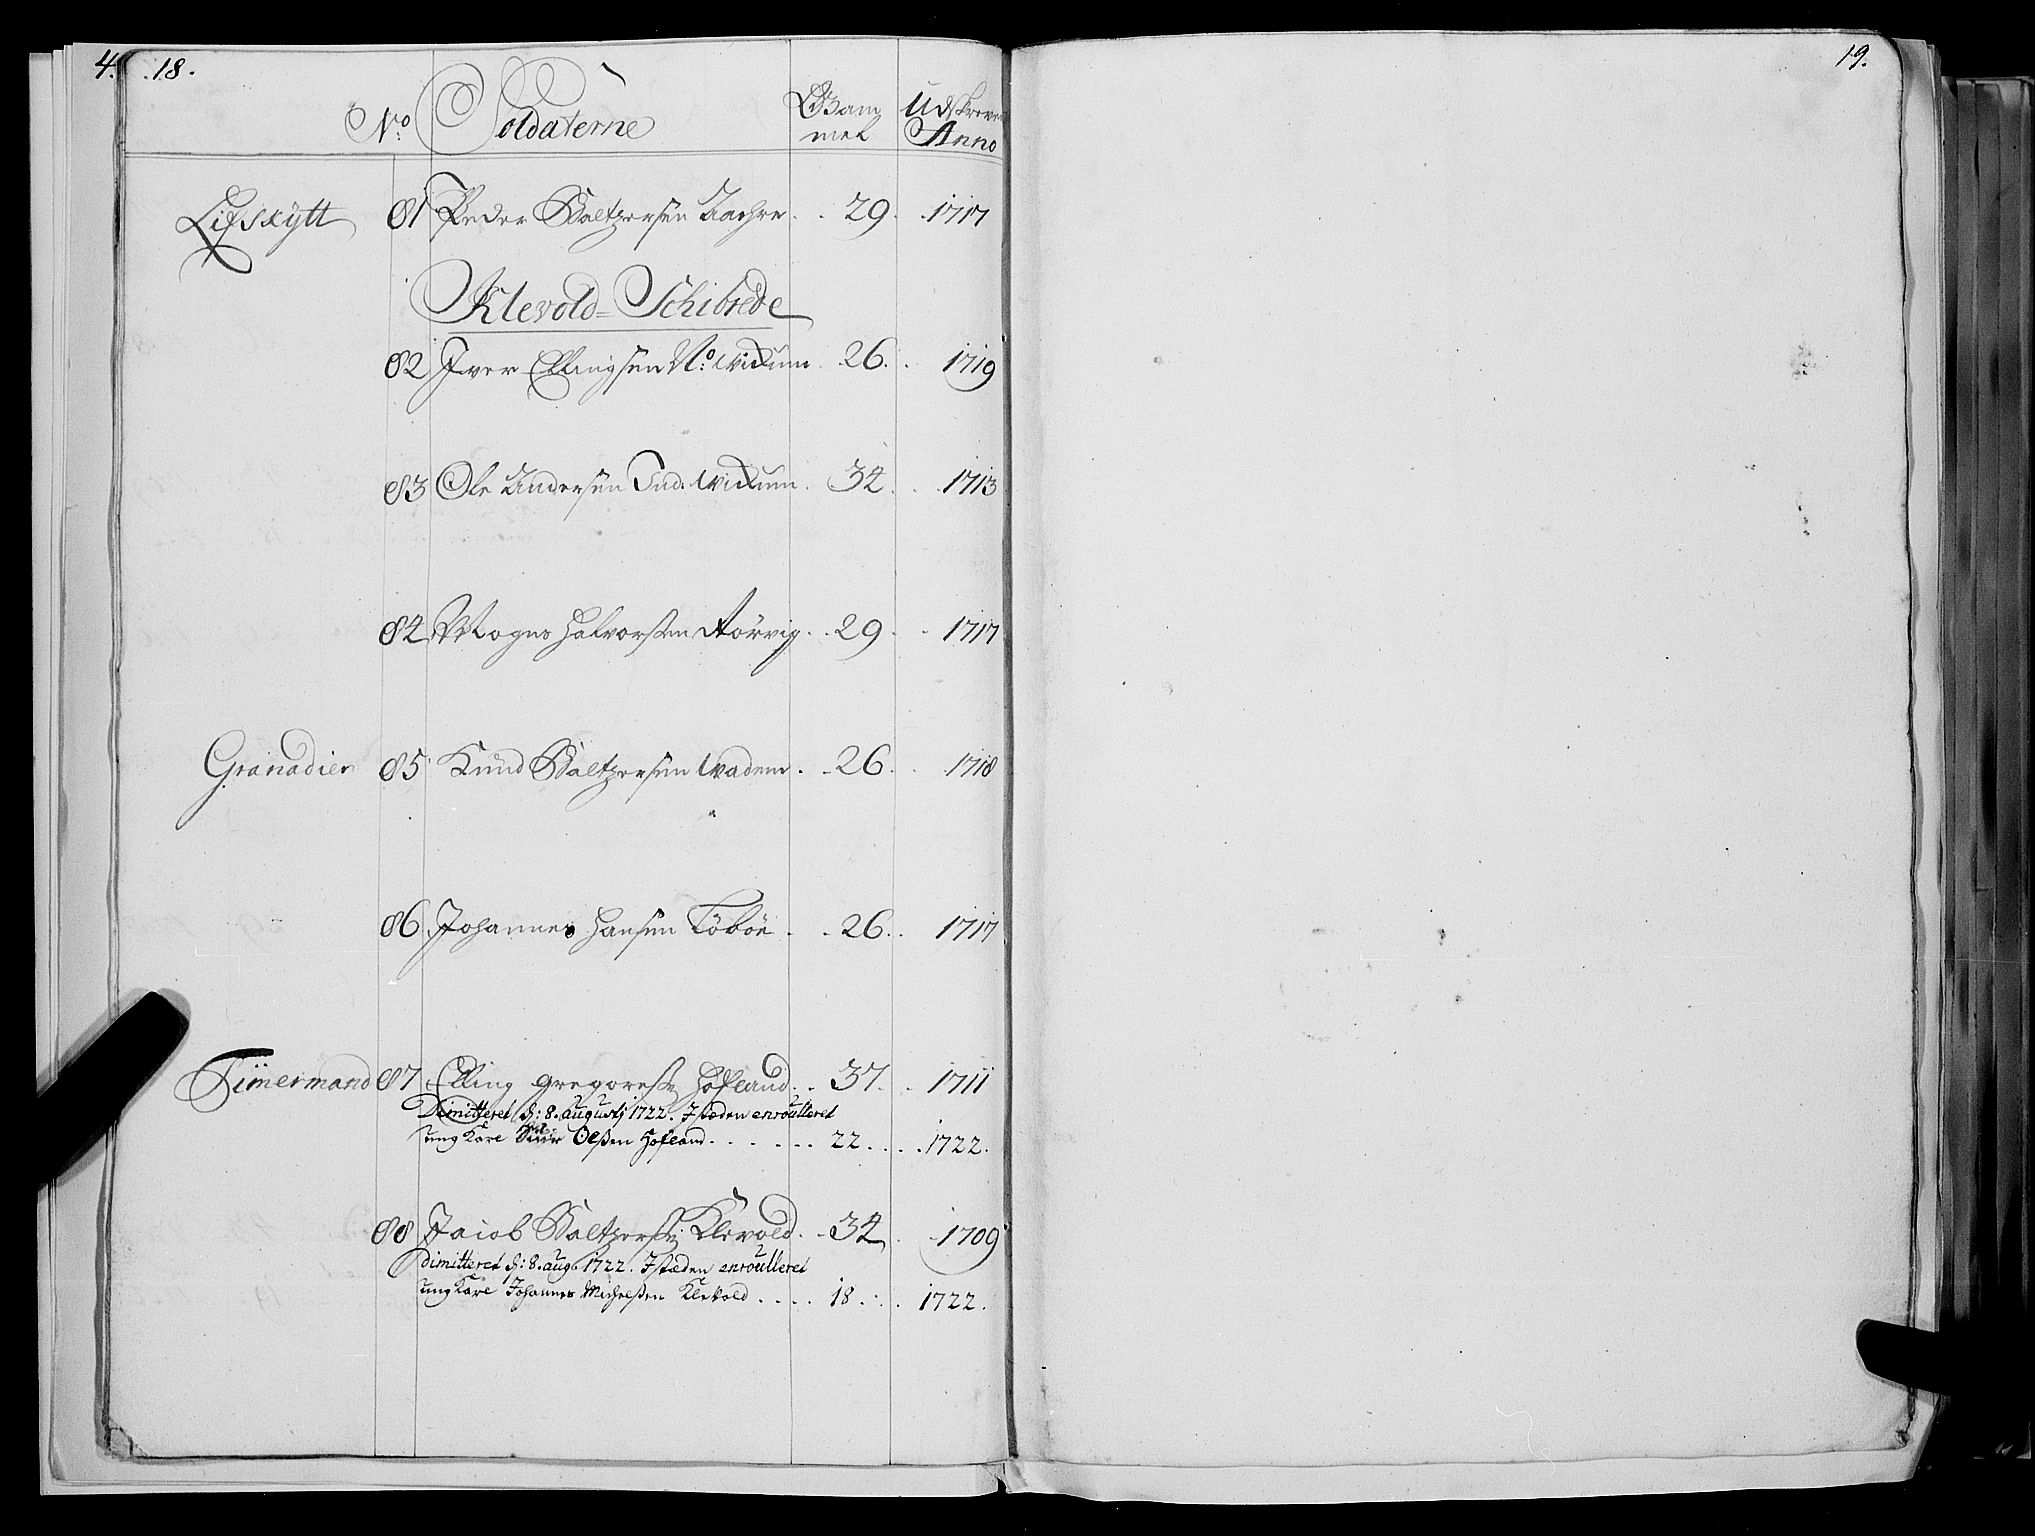 4. 18.
No Soldaterne Gammel Udskreven Anno
Lifskytt 81 Peder Baltzersen Aachre . . 29 . . 1717
Klevold= Schibrede
82 Iver Ellingsen No: Wixum . 26 . . 1719
83 Ole Andersen Ind. Wixum . 34 . . 1713
84 Mogns Halvorsen Rörvig . . 29 . . 1717
Granadier 85 Knud Baltzersen Wadem . . 26 . . 1718
86 Johannes Hansen Töböe . . 26 . . 1717
Timermand 87 Elling Gregoress: Hofland . . 37 . . 1711
Dimitteret d: 8. augustj 1722. Jstæden enroulleret
ung Karl Olßen Hofland . . . . . . 22 . . . . 1722.
88 Jacob Baltzerss: Klevold . . 34 . . 1709
dimitteret d: 8. aug. 1722. Jstæden enroulleret
ung Karl Johannes Michelßen Klevold . . . . 18 . . . 1722.
19.